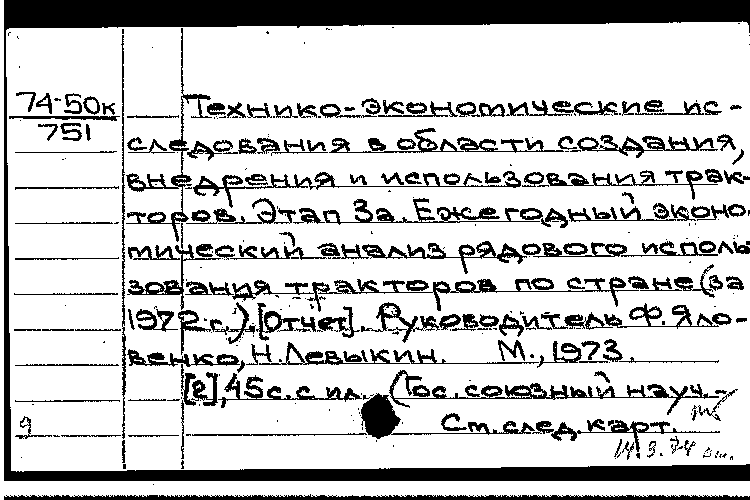 74-50к
751
Технико-экономические ис-
следования в области создания,
внедрения и использования трак-
торов. Этап 3а. Ежегодный эконо-
мический анализ рядового исполь
зования тракторов по стране (за
1972 г.). [Отчет]. Руководитель Ф. Яло-
венко, Н. Левыкин. М., 1973.
[2], 45 с. с ил. (Гос. союзный науч.-
9 См. след. карт.
14.3.74